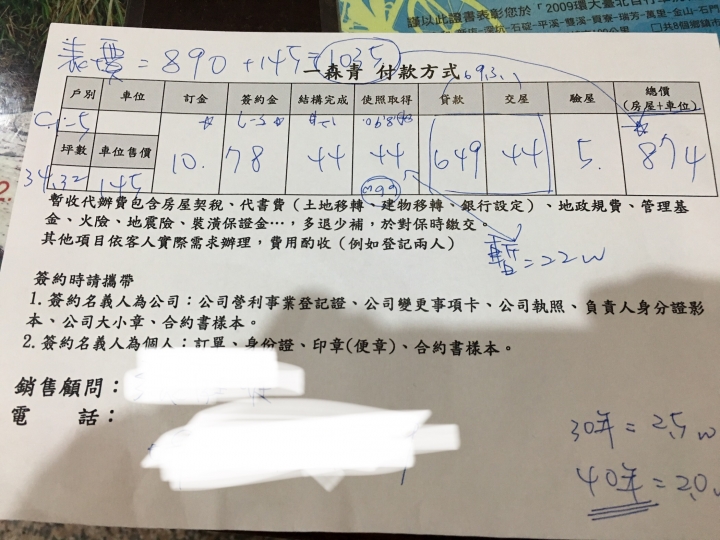 謹以此證書表彰您於「2009環大臺北自行車
深坑-石碇-平溪-雙溪-貢寮-瑞芳-萬里-金山-石門
表價 = 890 + 145 = 1035
一森青 付款方式 693.1
戶別 車位 訂金 簽約金 結構完成 使照取得 貸款 交屋 驗屋 總價(房屋+車位)
坪數 車位售價 10. 78 44 44 649 44 5. 874
34.32 145
暫收代辦費包含房屋契稅、代書費(土地移轉、建物移轉、銀行設定)、地政規費、管理基
金、火險、地震險、裝潢保證金…,多退少補,於對保時繳交。
其他項目依客人實際需求辦理,費用酌收(例如登記兩人)
=22w
簽約時請攜帶
1. 簽約名義人為公司:公司營利事業登記證、公司變更事項卡、公司執照、負責人身分證影
本、公司大小章、合約書樣本。
2. 簽約名義人為個人:訂單、身份證、印章(便章)、合約書樣本。
銷售顧問:
電 話:
30年 = 2.5w
40年 = 2.0w